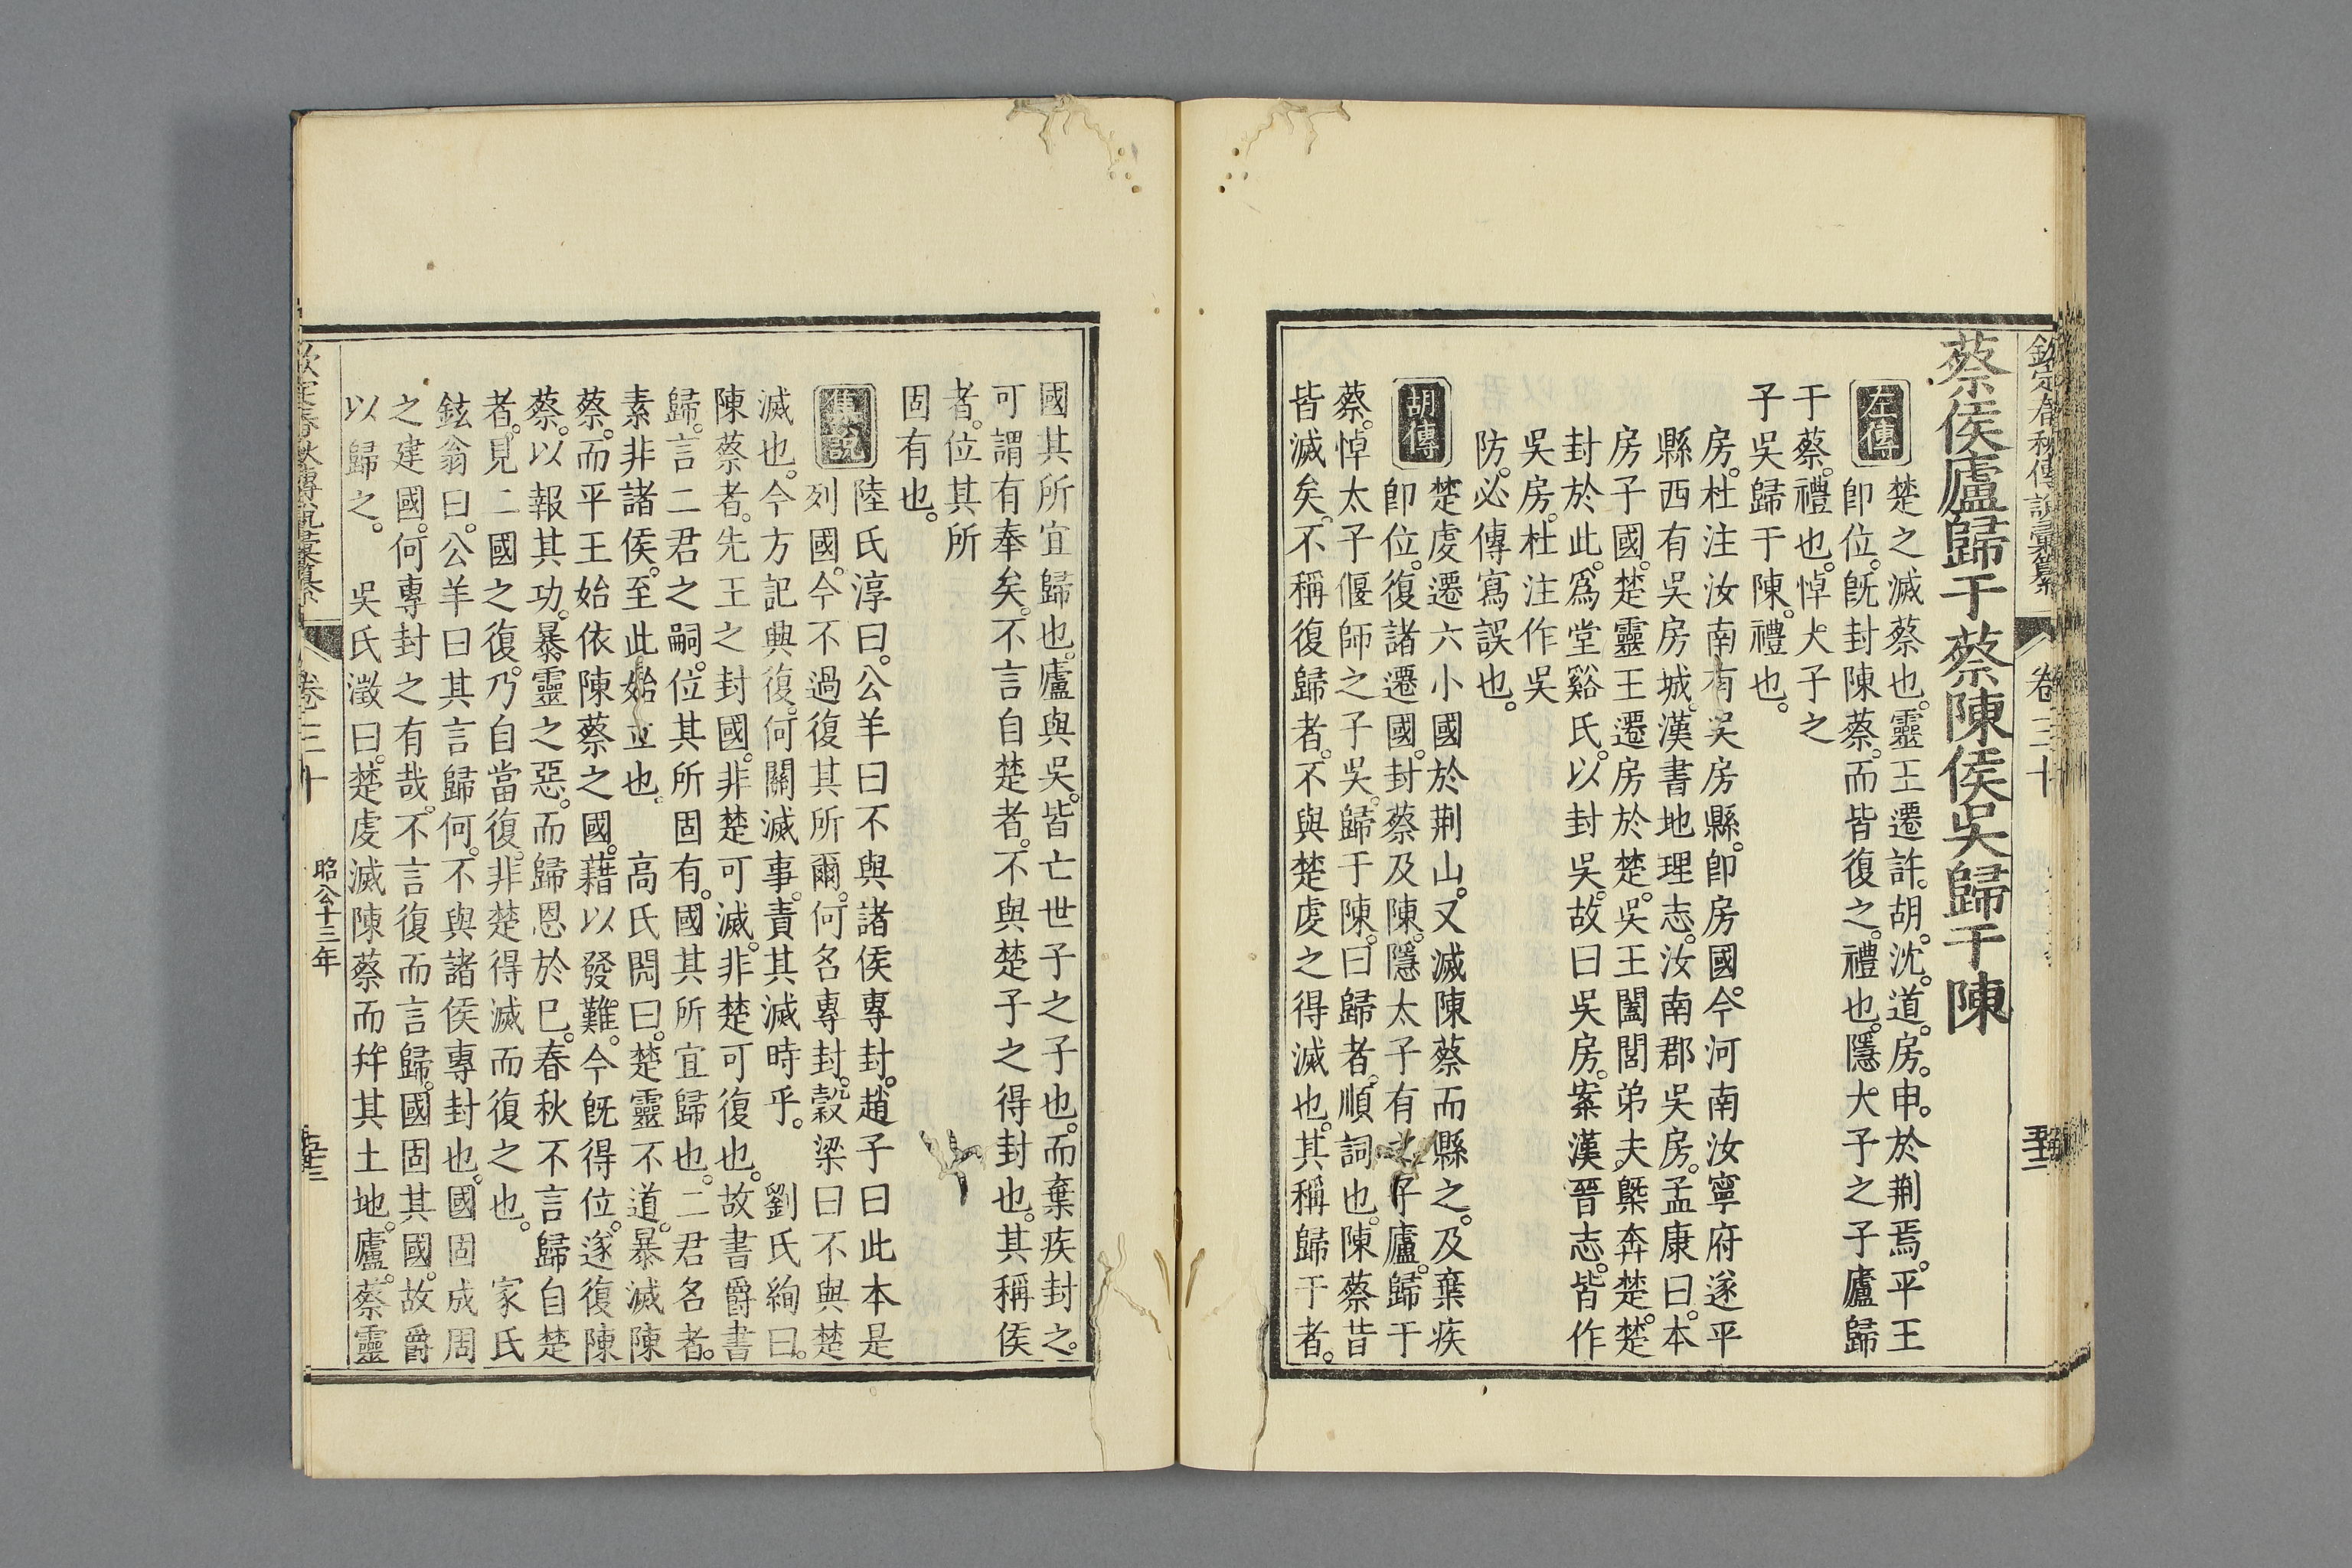 欽定春秋傳說彙纂 卷三十
蔡侯廬歸于蔡陳侯吳歸于陳
左傳 楚之滅蔡也。靈王遷許。胡。沈。道。房。申。於荆焉。平王
卽位。旣封陳蔡。而皆復之。禮也。隱大子之子廬歸
于蔡。禮也。悼大子之
子吳歸于陳。禮也。
房。杜注汝南有吳房縣。卽房國。今河南汝寧府遂平
縣西有吳房城。漢書地理志。汝南郡吳房。孟康曰。本
房子國。楚靈王遷房於楚。吳王闔閭弟夫槩奔楚。楚
封於此。爲堂谿氏。以封吳。故曰吳房。案漢晉志。皆作
吳房。杜注作吳
防。必傳寫誤也。
胡傳 楚虔遷六小國於荆山。又滅陳蔡而縣之。及棄疾
卽位。復諸遷國。封蔡及陳。隱太子有之子廬。歸于
蔡。悼太子偃師之子吳。歸于陳。曰歸者。順詞也。陳蔡昔
皆滅矣。不稱復歸者。不與楚虔之得滅也。其稱歸于者。
國其所宜歸也。廬與吳。皆亡世子之子也。而棄疾封之。
可謂有奉矣。不言自楚者。不與楚子之得封也。其稱侯
者。位其所
固有也。
集說 陸氏淳曰。公羊曰不與諸侯專封。趙子曰此本是
列國。今不過復其所爾。何名專封。穀梁曰不與楚
滅也。今方記興復。何關滅事。責其滅時乎。 劉氏絢曰。
陳蔡者。先王之封國。非楚可滅。非楚可復也。故書爵書
歸。言二君之嗣。位其所固有。國其所宜歸也。二君名者。
素非諸侯。至此始立也。 高氏閌曰。楚靈不道。暴滅陳
蔡。而平王始依陳蔡之國。藉以發難。今旣得位。遂復陳
蔡。以報其功。暴靈之惡。而歸恩於已。春秋不言歸自楚
者。見二國之復。乃自當復。非楚得滅而復之也。 家氏
鉉翁曰。公羊曰其言歸何。不與諸侯專封也。國固成周
之建國。何專封之有哉。不言復而言歸。國固其國。故爵
以歸之。 吳氏澂曰。楚虔滅陳蔡而幷其土地。廬。蔡靈
欽定春秋傳說彙纂 卷三十 昭公十三年